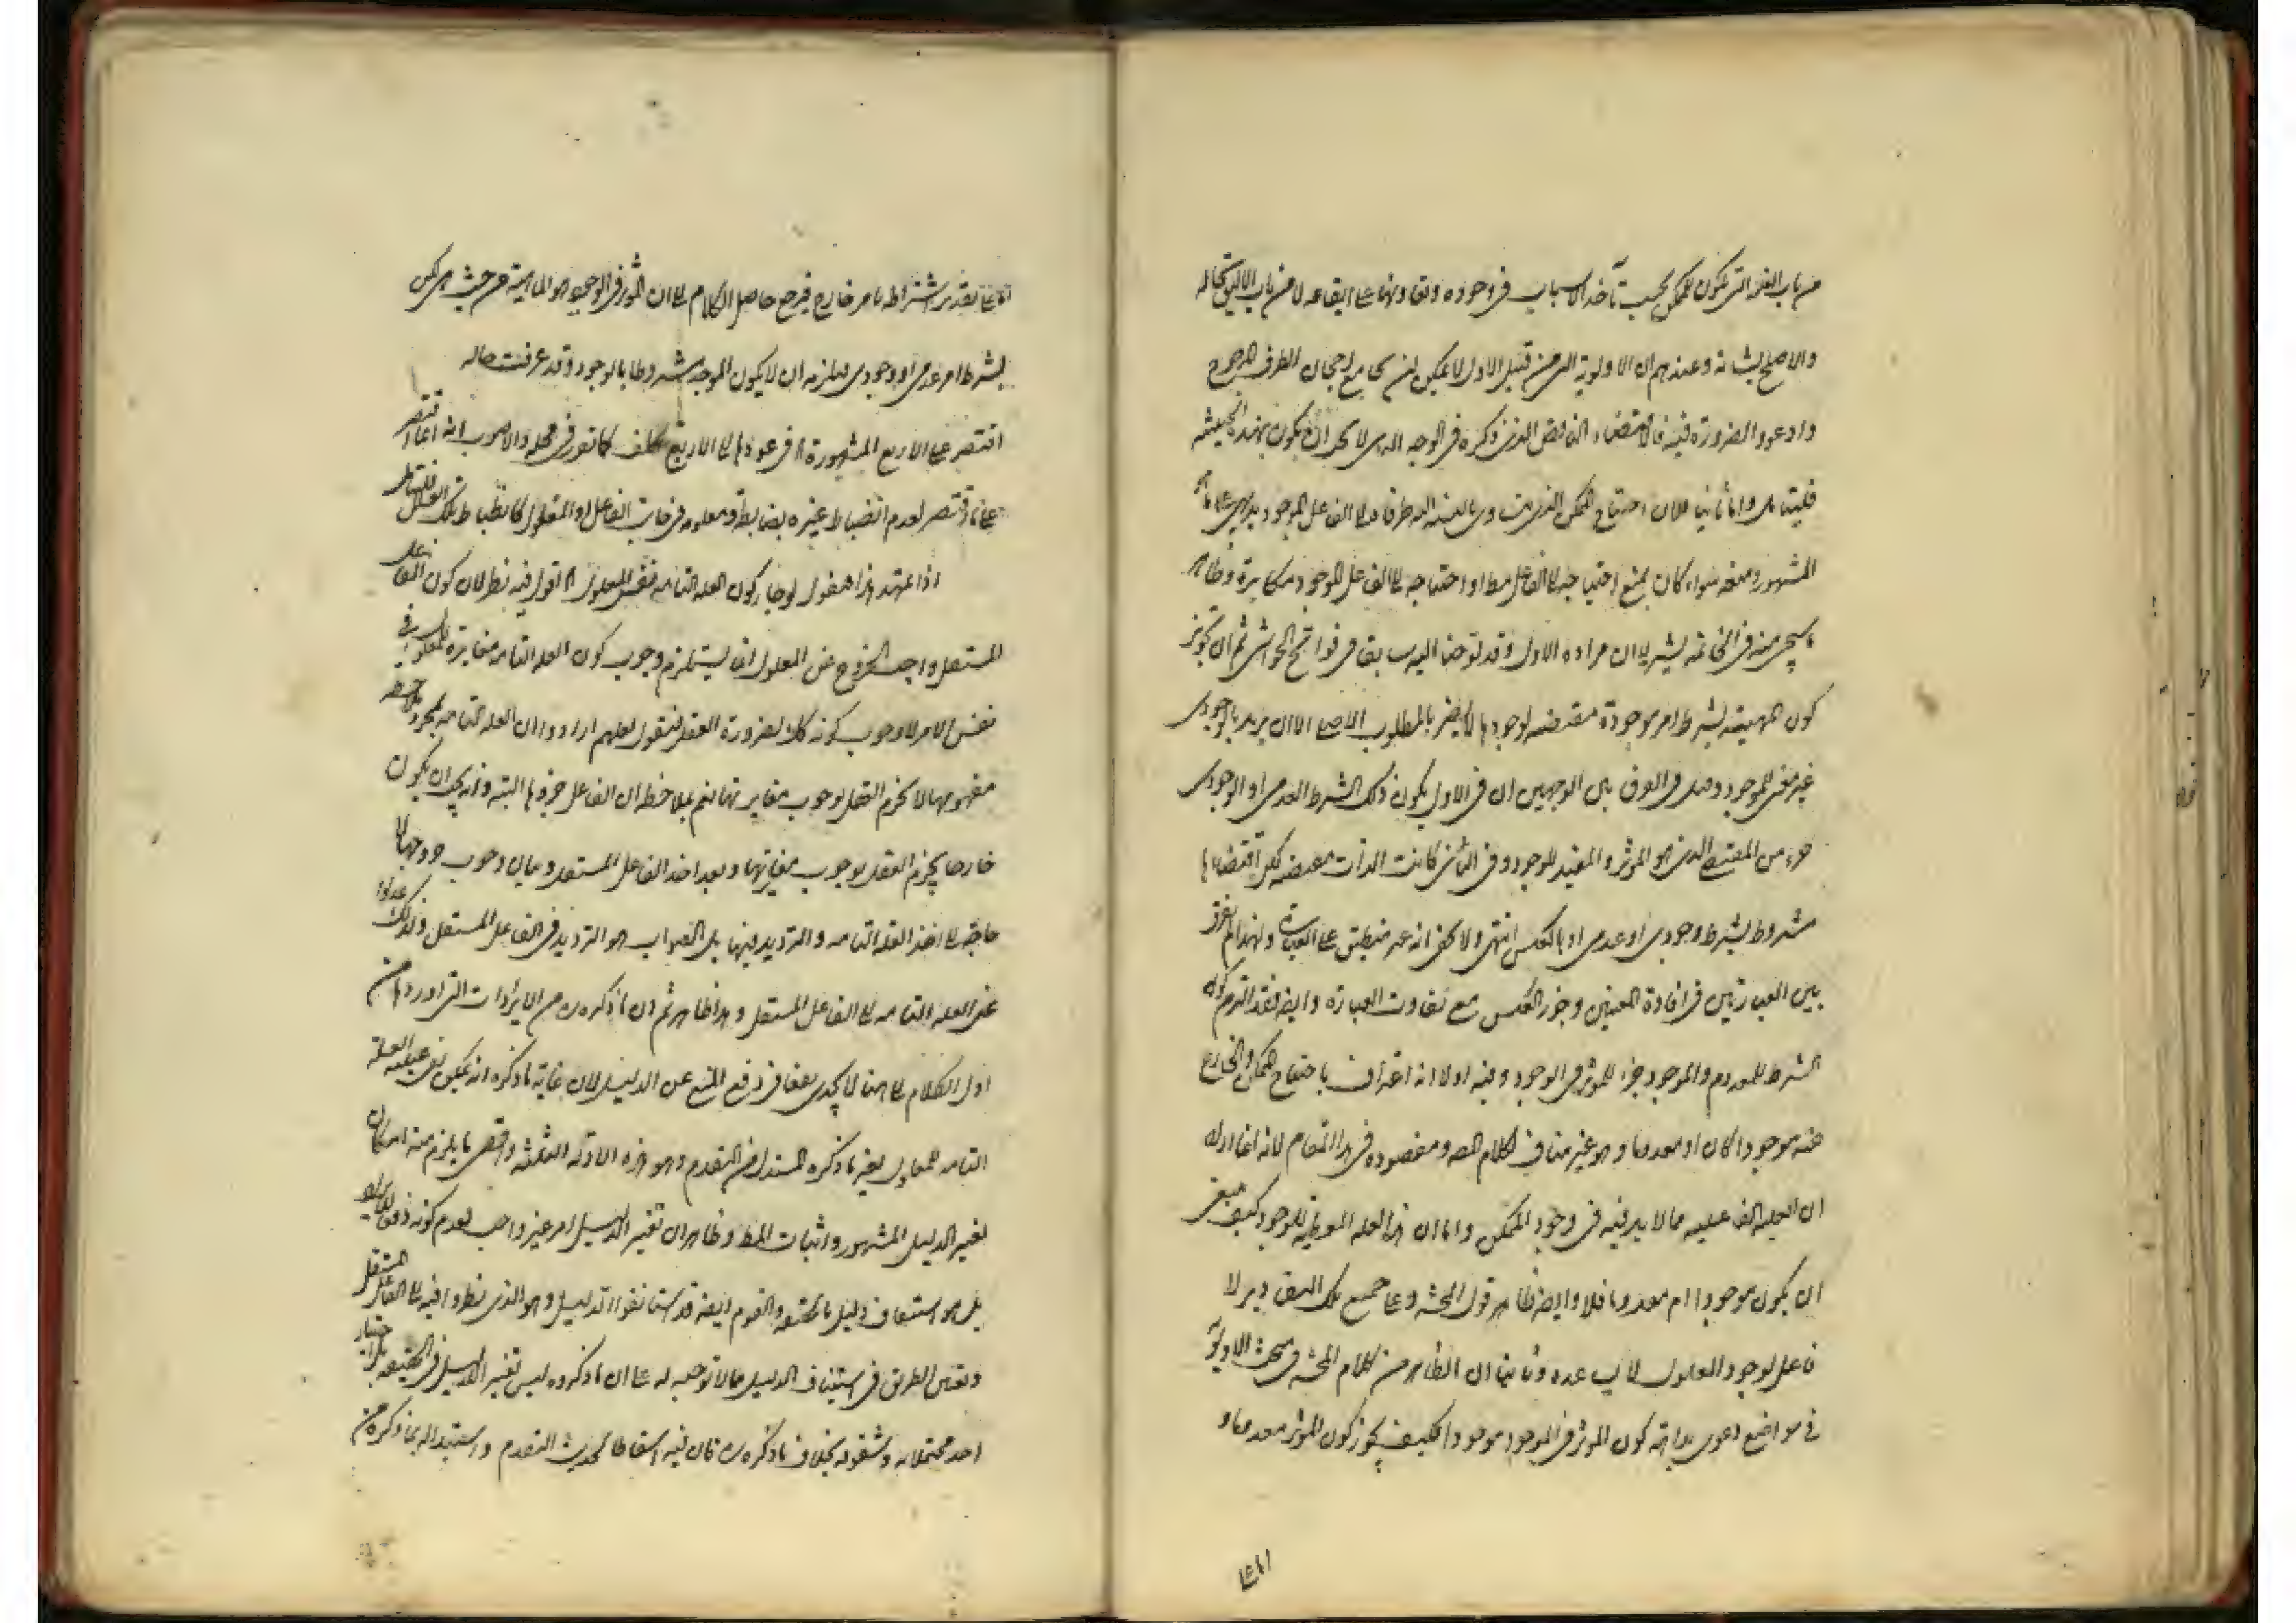 من باب العلة التي تكون للممكن بحسب تأخذ الاسباب في وجوده وتعاونها على ايقاعه لا من باب الاليق بحاله
والاصلح بشانه وعندهم ان الاولوية التي من قبيل الاول لا يمكن ان يجامع رجحان الطرف المرجوح
وادعوا الضرورة فيه فالاقتضاء الناقص الذي ذكره في الوجه لا يجوز ان يكون بهذه الحيثية
فليتامل واما ثانيا فلان احتياج الممكن الذي يتساوى بالنسبة اليه طرفاه الى الفاعل الموجود بديهي على ما هو
المشهور ومنعه سواء كان بمنع احتياجه الى الفاعل مط او احتياجه الى الفاعل الموجود مكابرة وظاهر
ما سيجئ منه في الخاتمة يشير الى ان مراده الاول وقد لوحنا اليه سابقا في فواتح الحواشي ثم ان تجويز
كون المهية بشرط امر موجودة مقتضيه لوجودها لا يضر بالمطلوب الاصلي الا ان يريد بالوجودي
غير معنى الموجود وقيل في الفرق بين الوجهين ان في الاول يكون ذلك الشرط العدمي او الوجودي
جزء من المقتضي الذي هو المؤثر والمفيد للوجود وفي الثاني كانت الذات مقتضيه لكن اقتضاءها
مشروط بشرط وجودي او عدمي او بالعكس انتهى ولا يخفى انه غير منطبق على العبارة ولهذا لم يفرق
بين العبارتين في افادة المعنيين وجوز العكس مع تفاوت العبارة وايضا فقد التزم كون
الشرط المعدوم والموجود جزء للمؤثر في الوجود وفيه اولا انه اعتراف باحتياج الممكن الى الخارج
عنه موجودا كان او معدوما وهو غير مناف لكلام المص ومقصوده في هذا المقام لانه انما اراد
ان العلية الفاعلية مما لا بد فيه في وجود الممكن واما ان هذا العلة المعطية للوجود كيف ينبغي
ان يكون موجودا ام معدوما فلا وايضا ظاهر قول المحشي وعلى جميع تلك التقادير لا
فاعل لوجود المعلول لا يساعده وثانيا ان الظاهر من كلام المحشي في مبحث الاولوية
في مواضع دعوى بداهة كون المؤثر في الموجود موجودا فكيف يجوز كون المؤثر معدوما و
اما على
اما على تقدير اشتراطه بامر خارج فيرجع حاصل الكلام الى ان المؤثر في الوجود هو الماهية من حيث هي لكن
بشرط امر عدمي او وجودي فيلزم ان لا يكون الموجد مشروطا بالوجود وقد عرفت حاله
اقتصر على الاربع المشهورة في عودها الى الاربع تكلف كما تقرر في محله والاصوب انه انما اقتصر
على ما اقتصر لعدم انضباط غيره بضابطة معلومه في جانب الفاعل او المعلول كانضباط تلك العلل فليتامل
اذا تمهد هذا فنقول لو جاز كون العلة التامه نفس المعلول اقول فيه نظر لان كون الفاعل
المستقل واجب الخروج عن المعلول انما يستلزم وجوب كون العلة التامه مغايرة للمعلول في
نفس الامر لا وجوب كونه كك بضرورة العقل فنقول لعلهم ارادوا ان العلة التامه بمجرد ملاحظة
مفهومها لا يجزم العقل بوجوب مغايرتها نعم بملاحظة ان الفاعل جزءها البتة وانه يجب ان يكون
خارجا يجزم العقل بوجوب مغايرتها وبعد اخذ الفاعل المستقل وبيان وجوب خروجه لا
حاجة الى اخذ العلة التامه والترديد فيها بل الصواب هو الترديد في الفاعل المستقل ولذلك عدلوا
عن العلة التامه الى الفاعل المستقل وهذا ظاهر ثم ان ما ذكره من الايرادات التي اوردها من
اول الكلام الى هنا لا يجدي نفعا في دفع المنع عن الدليل لان غاية ما ذكره انه يمكن نفي عينية العلة
التامه للمعلول بغير ما ذكره المستدل من التقدم وهو هذه الادلة الثلثة واقصى ما يلزم منه امكان
تغيير الدليل المشهور واثبات المط وظاهر ان تغيير الدليل امر غير واجب لعدم كونه دفعا
بل هو استيناف دليل ما كتبه والقوم ايضا قد استانفوا الدليل وهو الذي نظروا فيه الى الفاعل المستقل
وتعين الطريق في استيناف الدليل مما لا توجيه له على ان ما ذكروه ليس تغيير الدليل في الحقيقة بل اختيار
احد محتملاته وشقوقه بخلاف ما ذكره فان فيه اسقاطا لحديث التقدم واستبداله بما ذكره من